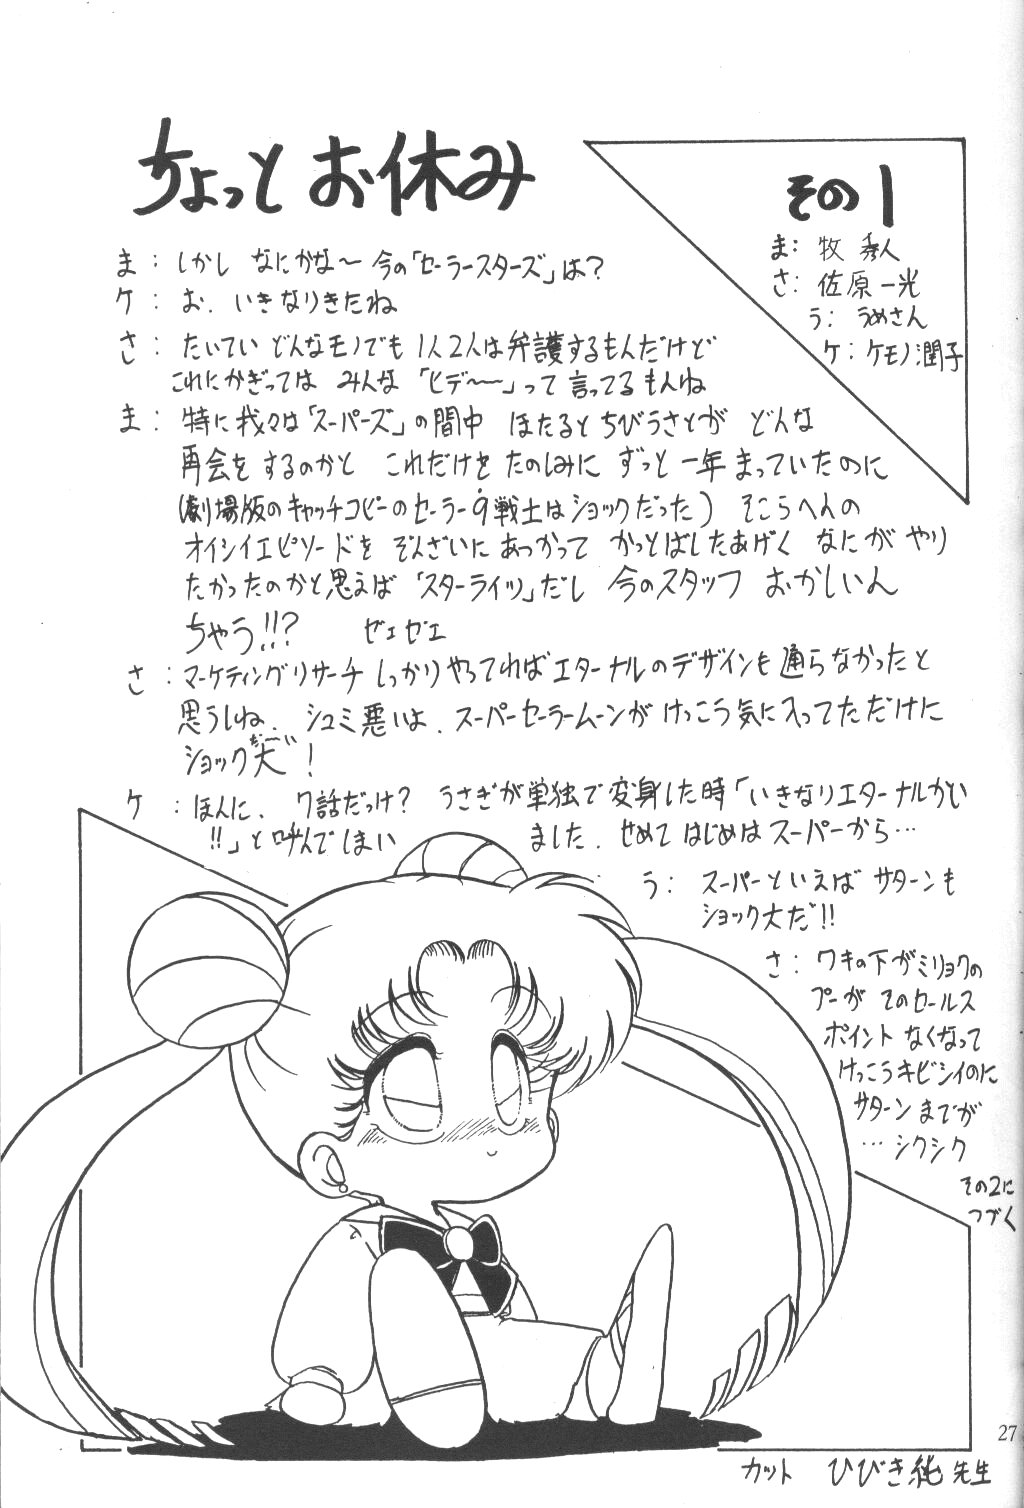 ちょっとお休み
その1
ま：牧 秀人
さ：佐原一光
う：うめさん
ケ：ケモノ潤子
ま：しかし なにかな〜 今の「セーラースターズ」は？
ケ：お．いきなりきたね
さ：たいてい どんなモノでも 1人2人は弁護するもんだけど
これにかぎっては みんな「ヒデ〜〜」って言ってるもんね
ま：特に我々は「スーパーズ」の間中 ほたるとちびうさとが どんな
再会をするのかと これだけを たのしみに ずっと一年まっていたのに
（劇場版のキャッチコピーのセーラー9戦士はショックだった）そこらへんの
オイシイエピソードを ぞんざいにあつかって かっとばしたあげく なにが やり
たかったのかと思えば「スターライツ」だし 今のスタッフ おかしいん
ちゃう!!? ゼェゼェ
さ：マーケティングリサーチ しっかりやってれば エターナルのデザインも通らなかったと
思うしね．シュミ悪いよ．スーパーセーラームーンがけっこう気に入ってただけに
ショック大！
ケ：ほんに、7話だっけ？ うさぎが単独で変身した時「いきなりエターナルかい
!!」と呼んでしまい ました．せめて はじめはスーパーから…
う：スーパーといえば サターンも
ショック大だ!!
さ：ワキの下がミリョクの
プーが そのセールス
ポイント なくなって
けっこうキビシイのに
サターンまでが
…シクシク
その2に
つづく
27
カット ひびき純先生